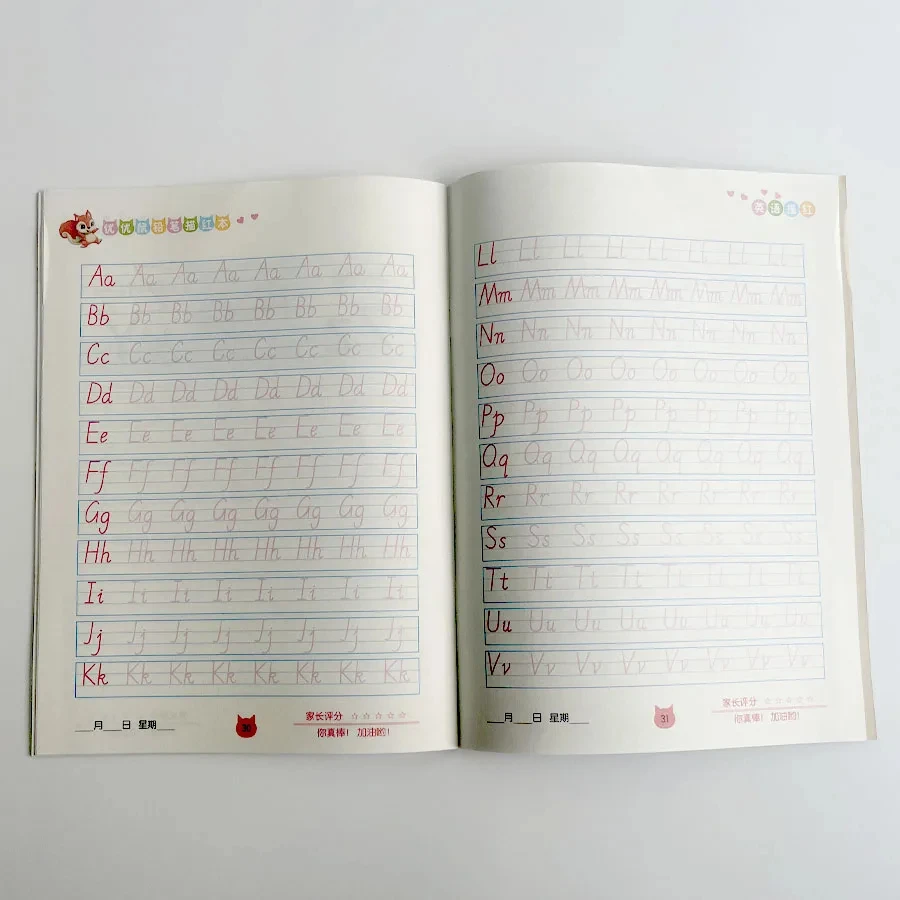 优优鼠铅笔描红本
Aa Aa Aa Aa Aa Aa Aa Aa
Bb Bb Bb Bb Bb Bb Bb Bb
Cc Cc Cc Cc Cc Cc Cc Cc
Dd Dd Dd Dd Dd Dd Dd Dd
Ee Ee Ee Ee Ee Ee Ee Ee
Ff Ff Ff Ff Ff Ff Ff Ff
Gg Gg Gg Gg Gg Gg Gg Gg
Hh Hh Hh Hh Hh Hh Hh Hh
Ii Ii Ii Ii Ii Ii Ii Ii
Jj Jj Jj Jj Jj Jj Jj Jj
Kk Kk Kk Kk Kk Kk Kk Kk
___月___日 星期___
30
家长评分 ☆☆☆☆☆
你真棒! 加油啦!
英语描红
Ll Ll Ll Ll Ll Ll Ll Ll
Mm Mm Mm Mm Mm Mm Mm Mm
Nn Nn Nn Nn Nn Nn Nn Nn
Oo Oo Oo Oo Oo Oo Oo Oo
Pp Pp Pp Pp Pp Pp Pp Pp
Qq Qq Qq Qq Qq Qq Qq Qq
Rr Rr Rr Rr Rr Rr Rr Rr
Ss Ss Ss Ss Ss Ss Ss Ss
Tt Tt Tt Tt Tt Tt Tt Tt
Uu Uu Uu Uu Uu Uu Uu Uu
Vv Vv Vv Vv Vv Vv Vv Vv
___月___日 星期___
31
家长评分 ☆☆☆☆☆
你真棒! 加油啦!